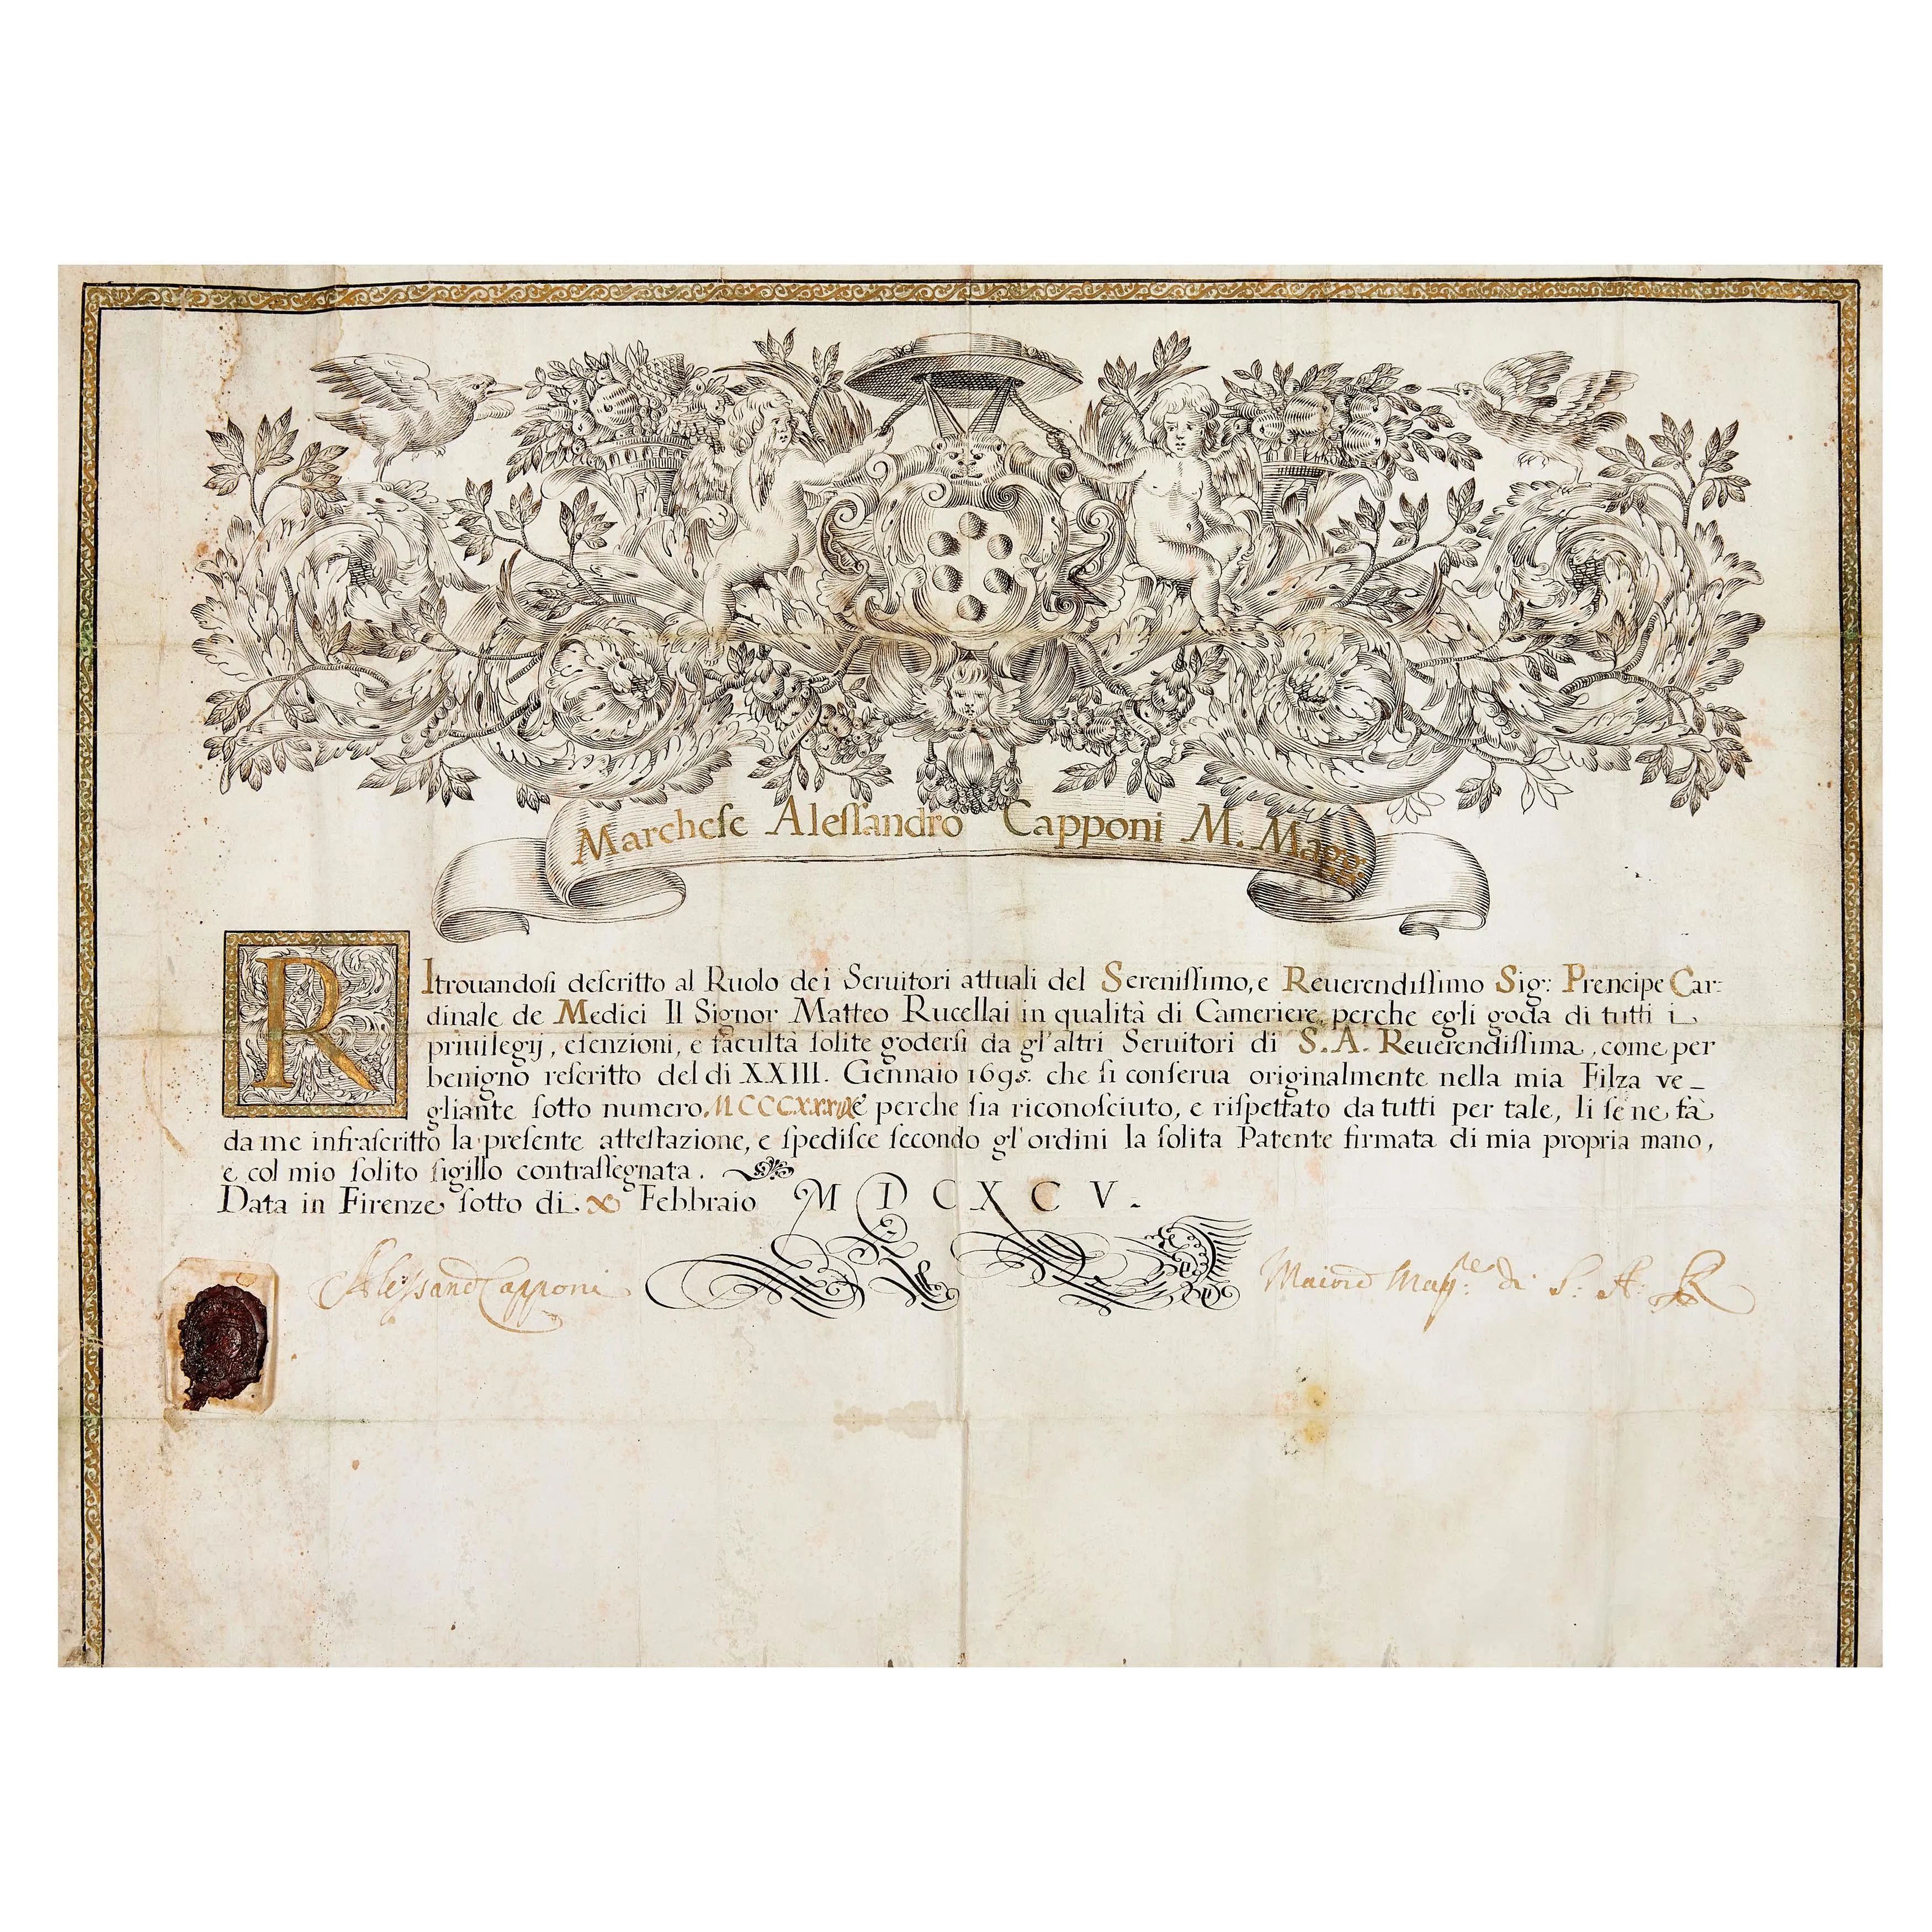 Marcheſe Aleſſandro Capponi M. Magg.
RItrouandoſi deſcritto al Ruolo dei Seruitori attuali del Sereniſſimo, e Reuerendiſſimo Sig: Prencipe Car:
dinale de Medici Il Signor Matteo Rucellai in qualità di Cameriere, perche egli goda di tutti i
priuilegij, eſenzioni, e facultà ſolite goderſi da gl'altri Seruitori di S.A. Reuerendiſſima, come per
benigno reſcritto del di XXIII. Gennaio 1695. che ſi conſerua originalmente nella mia Filza ve_
gliante ſotto numero è perche ſia riconoſciuto, e riſpettato da tutti per tale, li ſe ne fà
da me infraſcritto la preſente atteſtazione, e ſpediſce ſecondo gl'ordini la ſolita Patente firmata di mia propria mano,
e col mio ſolito ſigillo contraſſegnata.
Data in Firenze ſotto di Febbraio MDCXCV.
Alessand Capponi Maiord Magre. di S: A: R